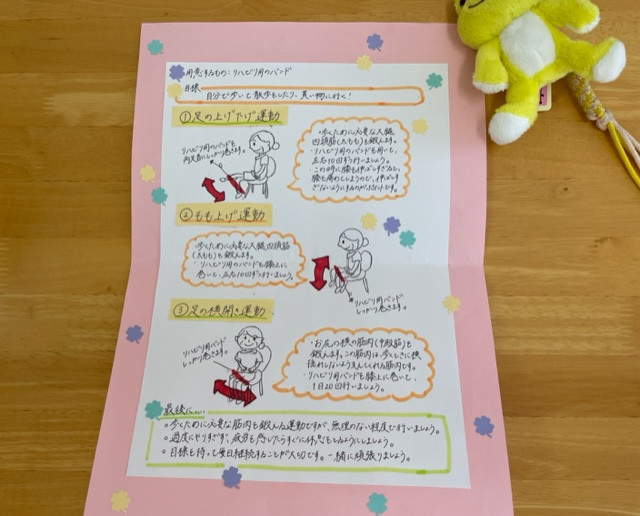 用意するもの：リハビリ用のバンド
目標
自分で歩いて散歩をしたり、買い物に行く！
①足の上げ下げ運動
リハビリ用のバンドを
両足首にしっかり巻きます。
・歩くために必要な大腿
四頭筋（太もも）を鍛えます。
・リハビリ用のバンドを用いて、
左右10回ずつ行いましょう。
・この時に膝を伸ばしすぎると、
膝を痛めてしまうので、伸ばしす
ぎないようにするのがポイントです。
②もも上げ運動
・歩くために必要な大腿四頭筋
（太もも）を鍛えます。
・リハビリ用のバンドを膝上に
巻いて、左右10回ずつ行いましょう。
リハビリ用バンド
しっかり巻きます。
③足の横開き運動
リハビリ用バンド
しっかり巻きます。
・お尻の横の筋肉（中殿筋）を
鍛えます。この筋肉は、歩くときに横
揺れしないよう支えてくれる筋肉です。
・リハビリ用バンドを膝上に巻いて、
1日20回行いましょう。
最後に…
・歩くために必要な筋肉を鍛える運動ですが、無理のない程度で行いましょう。
・過度にやりすぎず、疲労を感じたらすぐに休息をとるようにしましょう。
・目標を持って毎日継続することが大切です。一緒に頑張りましょう。